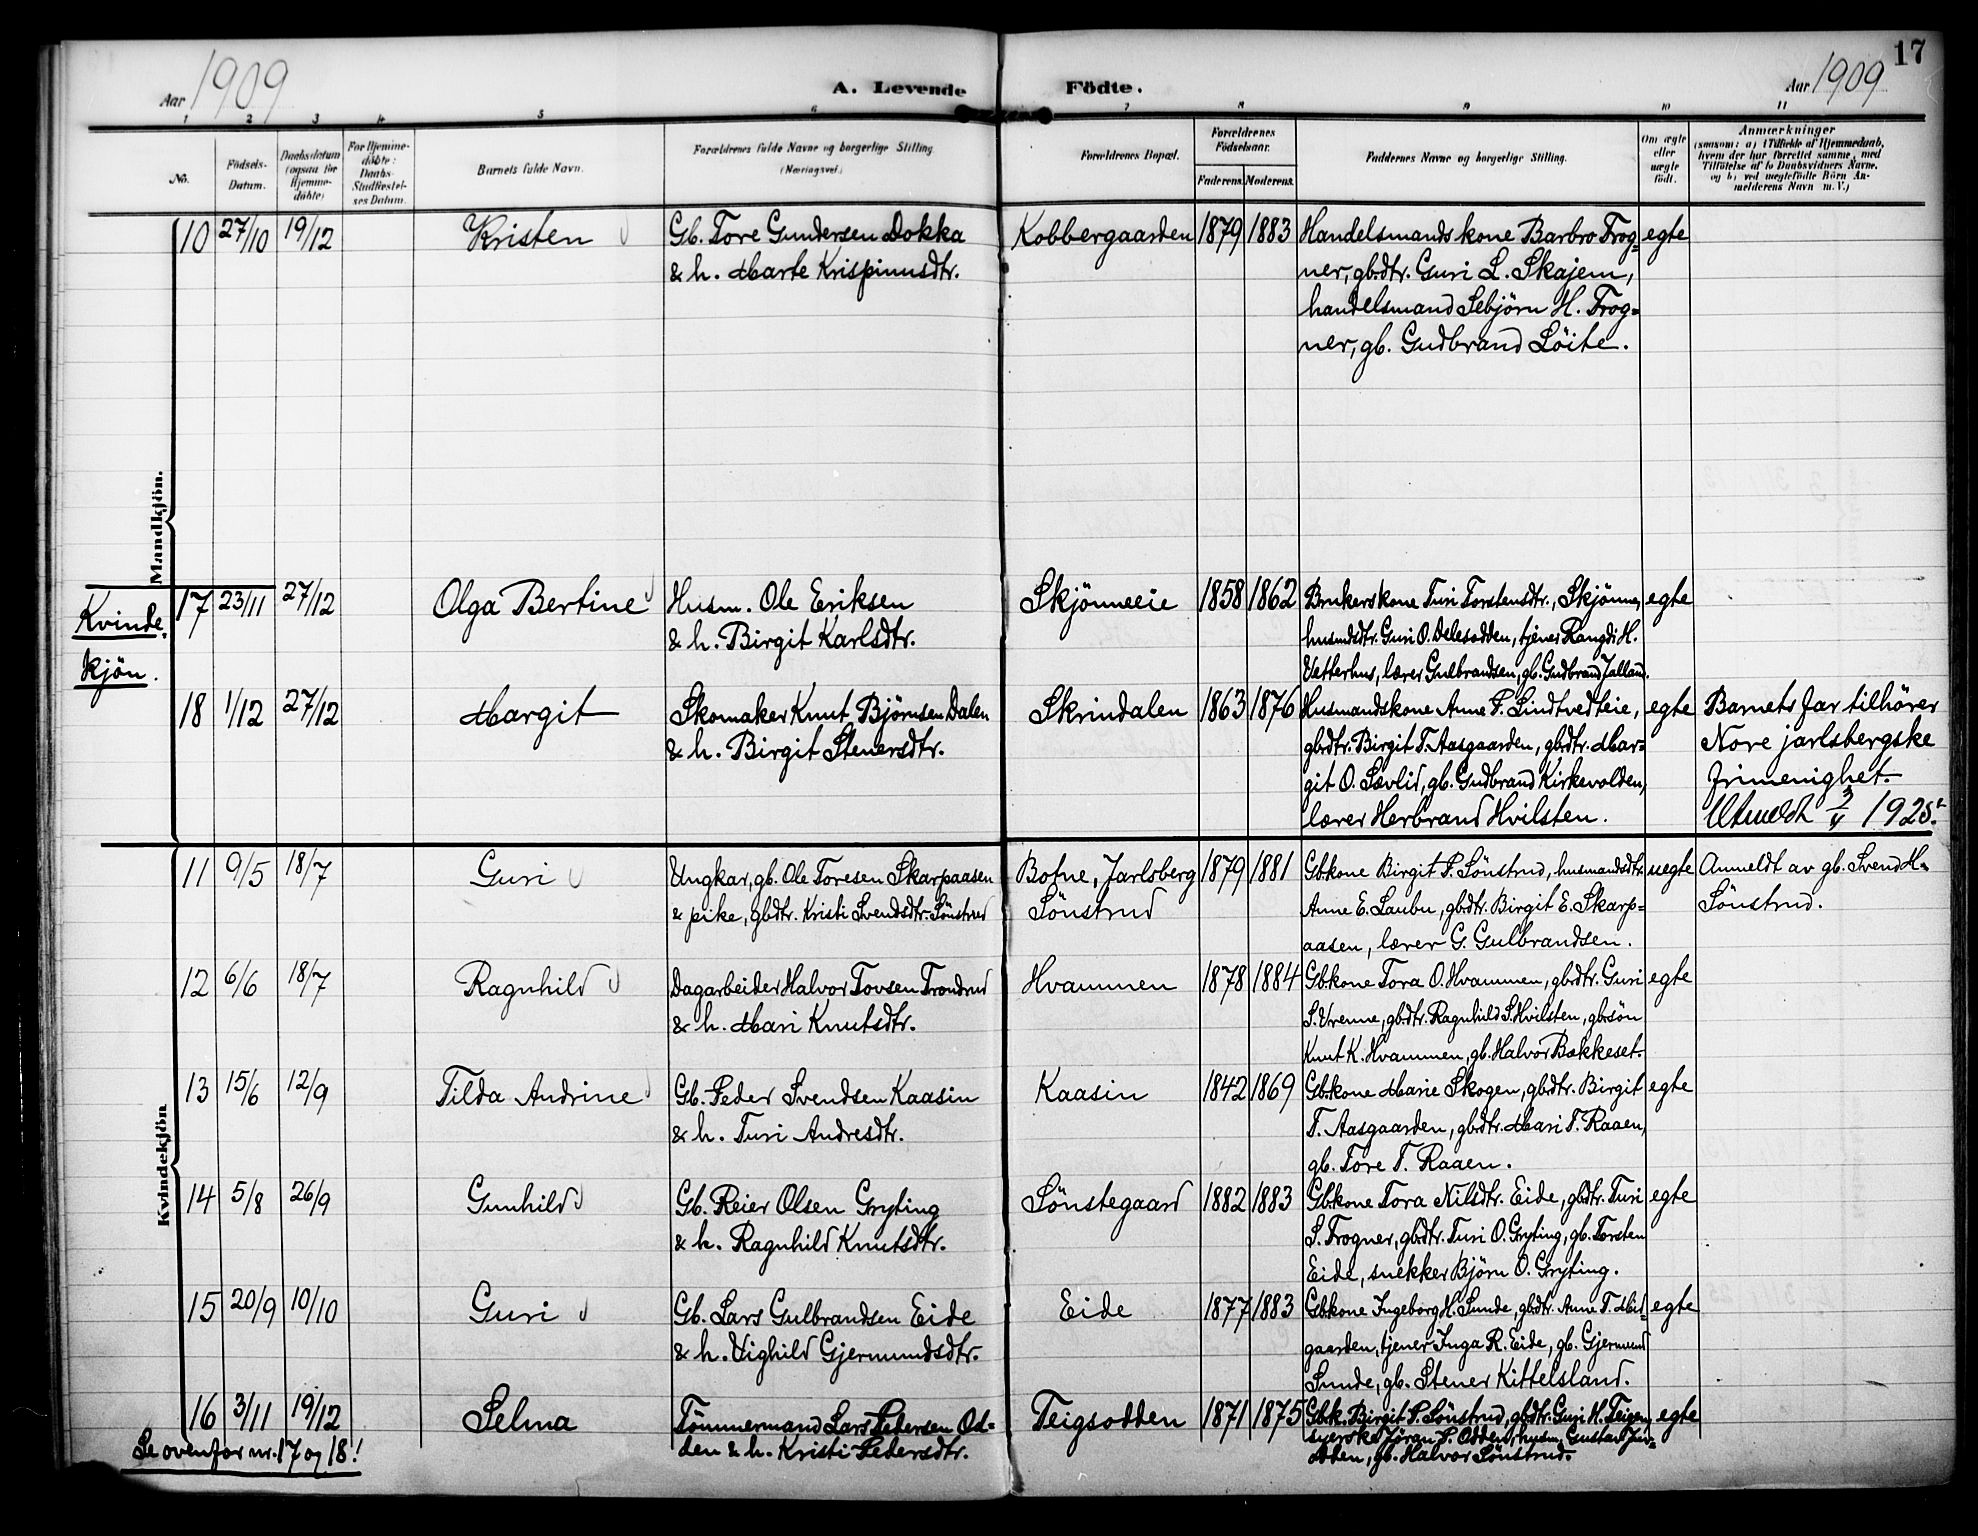 17
Aar 1909
A. Levende Födte.
Aar 1909
1 2 3 4 5 6 7 8 9 10 11
No.
Födsels-
Datum.
Daabsdatum
(ogsaa for
Hjemme-
döbte)
For Hjemme-
döbte:
Daabs-
Stadfæstel-
ses Datum.
Barnets fulde Navn.
Forældrenes fulde Navne og borgerlige Stilling
(Næringsvei.)
Forældrenes Bopæl.
Forældrenes
Födselsaar.
Faderens. Moderens.
Faddernes Navne og borgerlige Stilling.
Om ægte
eller
uægte
födt.
Anmærkninger
(saasom: a) i Tilfælde af Hjemmedaab,
hvem der har forrettet samme, med
Tilföielse af to Daabsvidners Navne,
og b) ved uægtefödte Börn An-
melderens Navn m. V.)
Mandkjön.
10 27/10 19/12 Kristen Gb. Tore Gundersen Dokka Kobbergaarden 1879 1883 Handelsmandskone Barbro Frog= egte
& h. Marte Krispinusdtr. ner, gbdtr. Guri L. Skajem,
handelsmand Sebjörn H. Frog=
ner, gb. Gudbrand Löite.
Kvinde
kjön.
17 23/11 27/12 Olga Bertine Husm. Ole Eriksen Skjönneeie 1858 1862 Brukerskone Turi Torstensdtr., Skjönne, egte
& h. Birgit Karlsdtr. husmdsdtr. Guri O. Delesodden, tjener Rangdi H.
Vetterhus, lærer Gulbrandsen, gb. Gudbrand Jalland.
18 1/12 27/12 Margit Skomaker Knut Björnsen Dalen Skrindalen 1863 1876 Husmandskone Anne P. Lindtvedteie, egte Barnets far tilhörer
& h. Birgit Stenersdtr. gbdtr. Birgit T. Aasgaarden, gbdtr. Mar= Nore jarlsbergske
git O. Sævlid, gb. Gudbrand Kirkevolden, frimenighet.
lærer Herbrand Hvilsten. Utmeldt 3/4 1925.
Kvindekjön
11 9/5 18/7 Guri Ungkar, gb. Ole Toresen Skarpaasen Botne, Jarlsberg 1879 1881 Gbkone Birgit P. Sönstrud, husmandsdtr. uegte Anmeldt av gb. Svend H.
& pike, gbdtr. Kristi Svendsdtr. Sönstrud Sönstrud Anne E. Laubu, gbdtr. Birgit E. Skarp= Sönstrud.
aasen, lærer G. Gulbrandsen.
12 6/6 18/7 Ragnhild Dagarbeider Halvor Tovsen Trondrud Hvammen 1878 1884 Gbkone Tora O. Hvammen, gbdtr. Guri egte
& h. Mari Knutsdtr. S. Vrenne, gbdtr. Ragnhild S. Hvilsten, gbsön
Knut K. Hvammen, gb. Halvor Bakkeset.
13 15/6 12/9 Tilda Andrine Gb. Peder Svendsen Kaasin Kaasin 1842 1869 Gbkone Marie Skogen, gbdtr. Birgit egte
& h. Turi Andresdtr. T. Aasgaarden, gbdtr. Mari T. Raaen,
gb. Tore T. Raaen.
14 5/8 26/9 Gunhild Gb. Reier Olsen Gryting Sönstegaard 1882 1883 Gbkone Tora Nilsdtr. Eide, gbdtr. Turi egte
& h. Ragnhild Knutsdtr. S. Frogner, gbdtr. Turi O. Gryting, gb. Torsten
Eide, snekker Björn O. Gryting.
15 20/9 10/10 Guri Gb. Lars Gulbrandsen Eide Eide 1877 1883 Gbkone Ingeborg H. Sunde, gbdtr. Anne T. Mid= egte
& h. Vighild Gjermundsdtr. gaarden, tjener Inga R. Eide, gb. Gjermund
Sunde, gb. Stener Kittelsland.
16 3/11 19/12 Selma Tömmermand Lars Pedersen Od= Teigsodden 1871 1875 Gbk. Birgit P. Sönstrud, gbdtr. Guri H. Teigen, egte
den & h. Kristi Pedersdtr. syerske Jöran P. Odden, husm. Gustav
gb. Halvor Sönstrud.
Se ovenfor nr. 17 og 18!